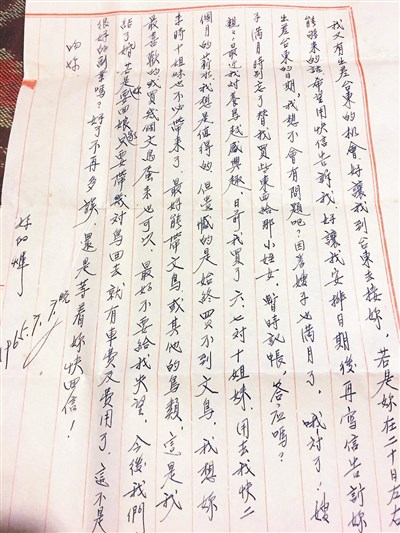 我又有出差台東的機會,好讓我到台東去接妳,若是妳在二十日左右
能夠來的話,希望用快信告訴我,好讓我安排日期後再寫信告訴妳
出差台東的日期,我想不會有問題吧?因為嫂子也滿月了,哦對了!嫂
子滿月時別忘了替我買些東西給那小姪女,暫時記帳,答应嗎?
親々:最近我对養鳥越感興趣日前我買了六、七对十姐妹,用去我快二
個月的薪水,我想是值得的,但遺憾的是始終買不到文鳥,我想妳
來時十姐妹也不必帶來了,最好能帶文鳥或其他的鳥類,這是我
最喜歡的,或買幾個文鳥蛋來也可以,最好不要給我失望,今後我們
結了婚,若是要回娘家,只要帶幾对鳥回去就有車費及費用了,這不是
很好的副業嗎?好了不再多談,還是等着妳快回信!
吻妳
妳的輝
1965.7.7.晚